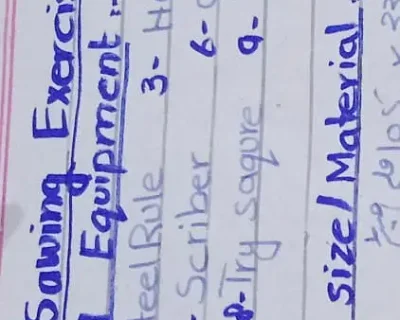 Sawing Exerci
Equipment :-
teel Rule 3- H
Scriber 6-
8- Try saqure 9-
Size/Material